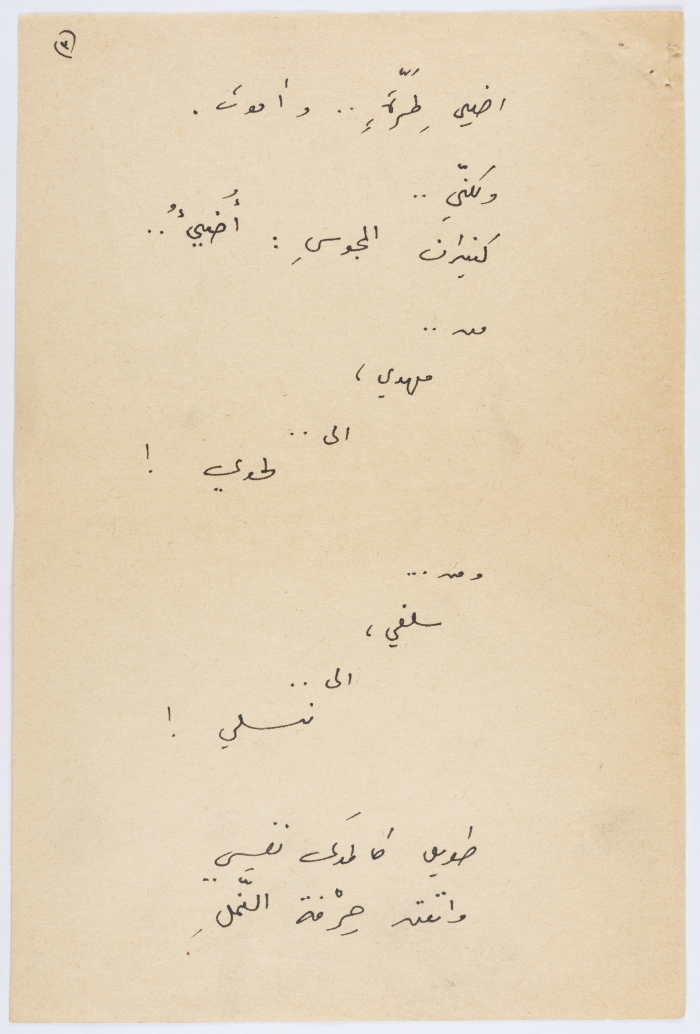 (٣)
اضيىء لِمَرَّةٍ .. وأموتَ .
ولكنّي ..
كنيران المجوسِ : أُضيىءُ ..
من ..
مهدي ،
الى ..
لحدي !
ومن ...
سلفي ،
الى ..
نسلي !
طويل كالمدَى نفَسي ..
واتقن حِرْفة النَّملِ .